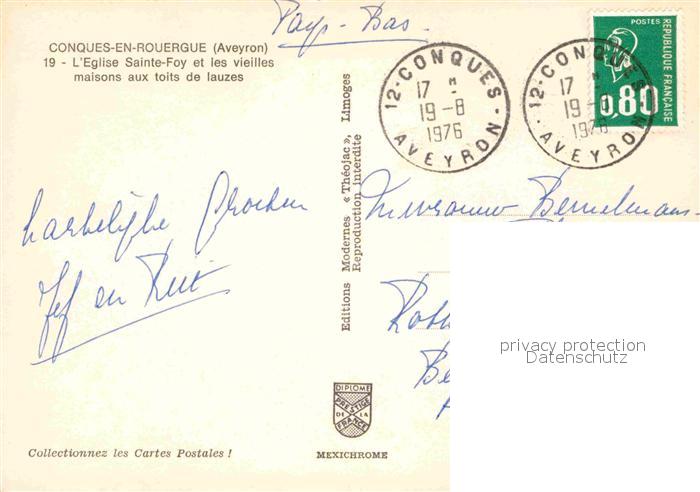 Pays-Bas
CONQUES-EN-ROUERGUE (Aveyron)
19 - L'Eglise Sainte-Foy et les vieilles
maisons aux toits de lauzes
12-CONQUES-
17 H
19-8
1976
AVEYRON
12-CONQUES-
17 H
19-8
1976
AVEYRON
POSTES
REPUBLIQUE FRANÇAISE
0,80
hartelijke groeten
Jef en Riet
Editions Modernes « Théojac », Limoges
Reproduction interdite
Mevrouw Bemelmans-
privacy protection
Datenschutz
DIPLOME
PRESTIGE
DE LA
FRANCE
Collectionnez les Cartes Postales !
MEXICHROME